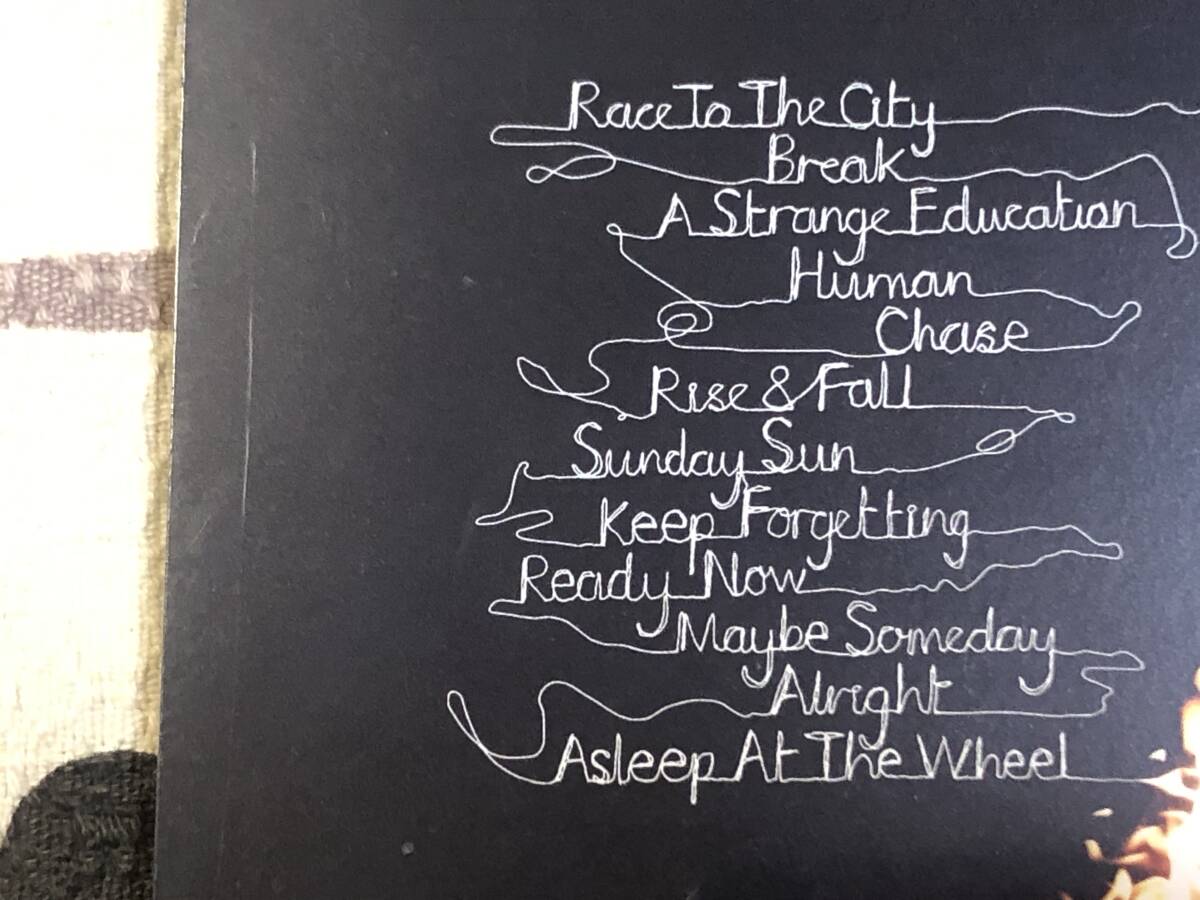 Race To The City
Break
A Strange Education
Human
Chase
Rise & Fall
Sunday Sun
Keep Forgetting
Ready Now
Maybe Someday
Alright
Asleep At The Wheel